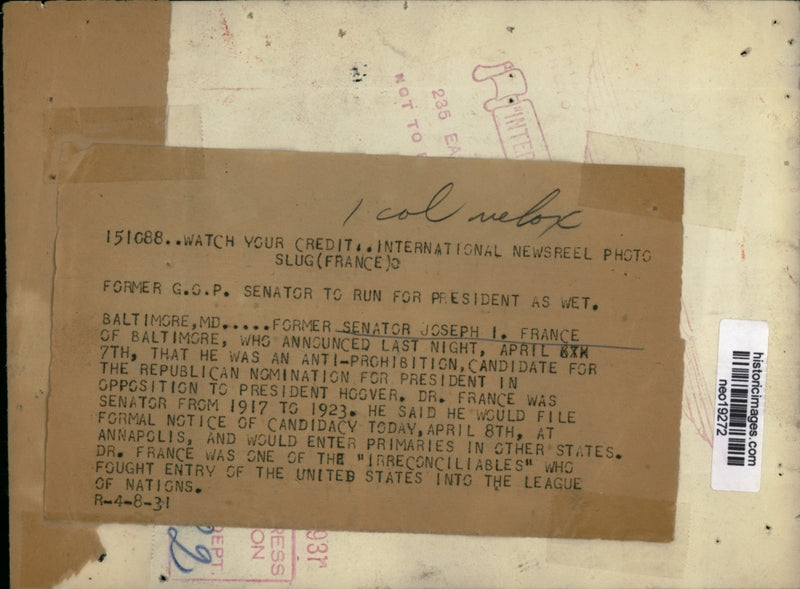 235 EA
NOT TO
"INTER
1 col velox
151088..WATCH YOUR CREDIT..INTERNATIONAL NEWSREEL PHOTO
SLUG(FRANCE)O
FORMER G.O.P. SENATOR TO RUN FOR PRESIDENT AS WET.
BALTIMORE,MD.....FORMER SENATOR JOSEPH I. FRANCE
OF BALTIMORE, WHO ANNOUNCED LAST NIGHT, APRIL 8TH
7TH, THAT HE WAS AN ANTI-PROHIBITION,CANDIDATE FOR
THE REPUBLICAN NOMINATION FOR PRESIDENT IN
OPPOSITION TO PRESIDENT HOOVER. DR. FRANCE WAS
SENATOR FROM 1917 TO 1923. HE SAID HE WOULD FILE
FORMAL NOTICE OF CANDIDACY TODAY,APRIL 8TH, AT
ANNAPOLIS, AND WOULD ENTER PRIMARIES IN OTHER STATES.
DR. FRANCE WAS ONE OF THE "IRRECONCILIABLES" WHO
FOUGHT ENTRY OF THE UNITED STATES INTO THE LEAGUE
OF NATIONS.
R-4-8-31
historicimages.com
neo19272
931
RESS
ON
DEPT.
2